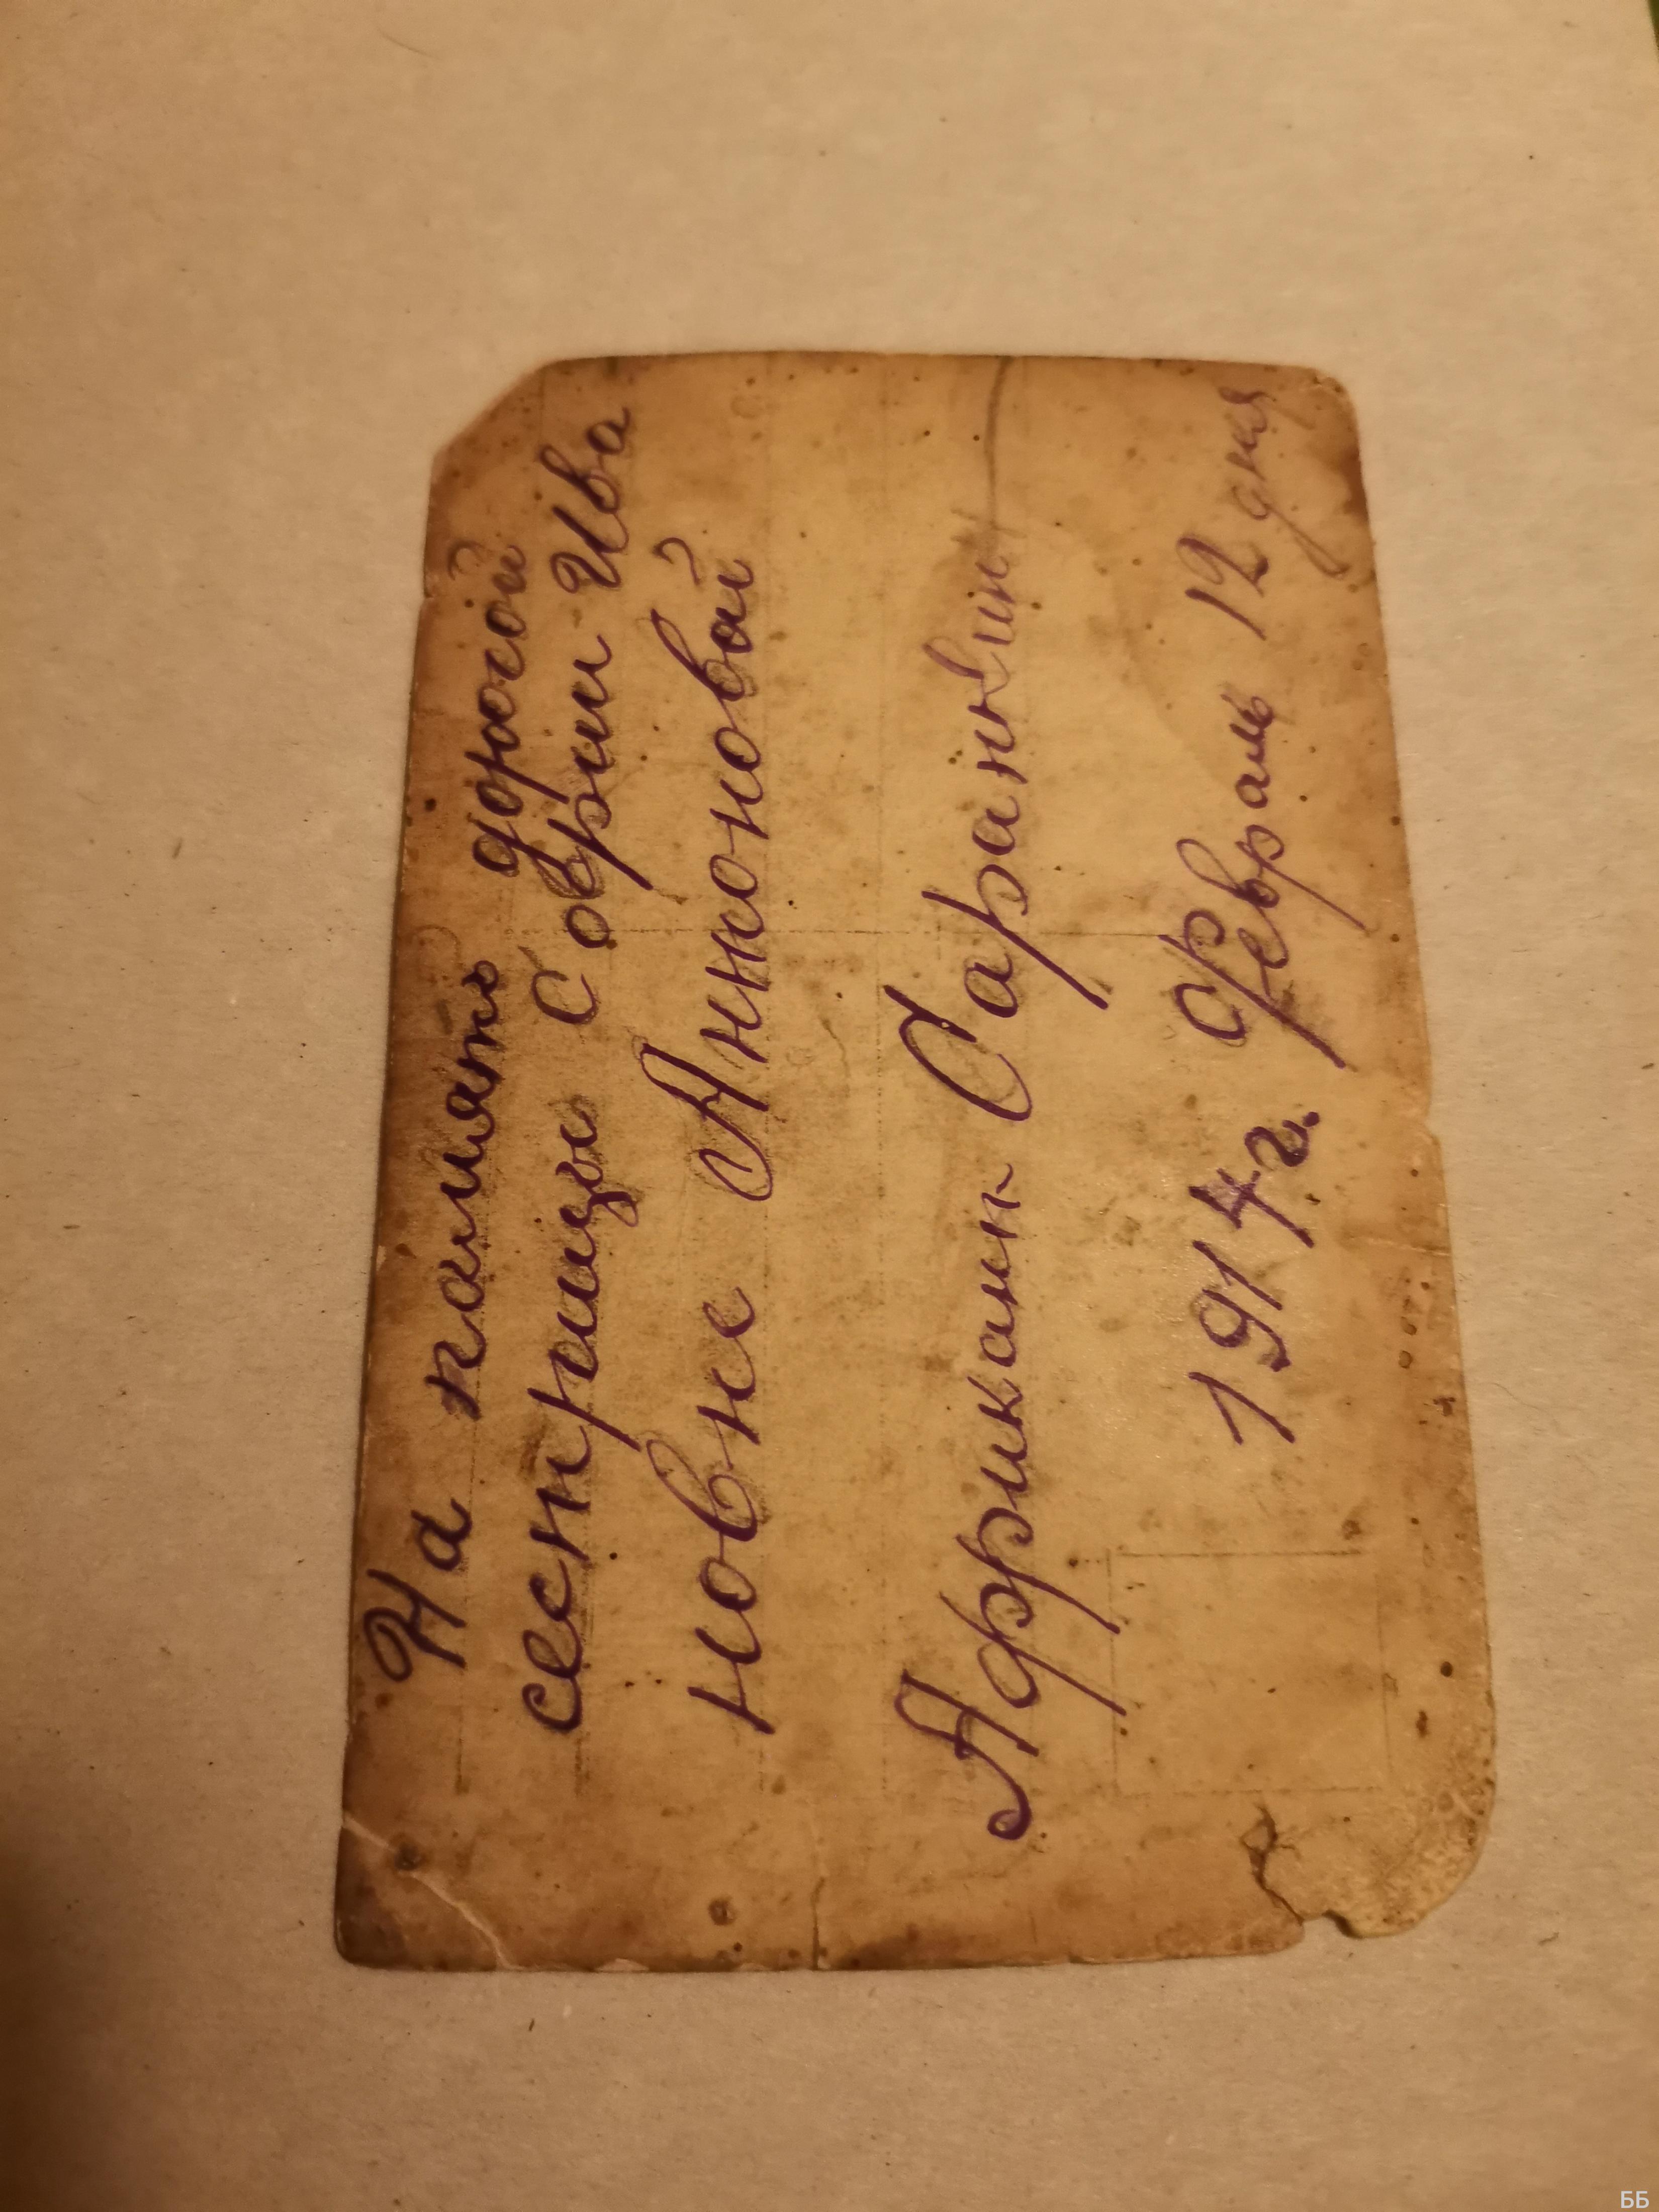 На память дорогой
сестрицы Софии Ива
новне Анноновой
Африкант Саранчин
1914 г. Февраль 12 дня
ББ